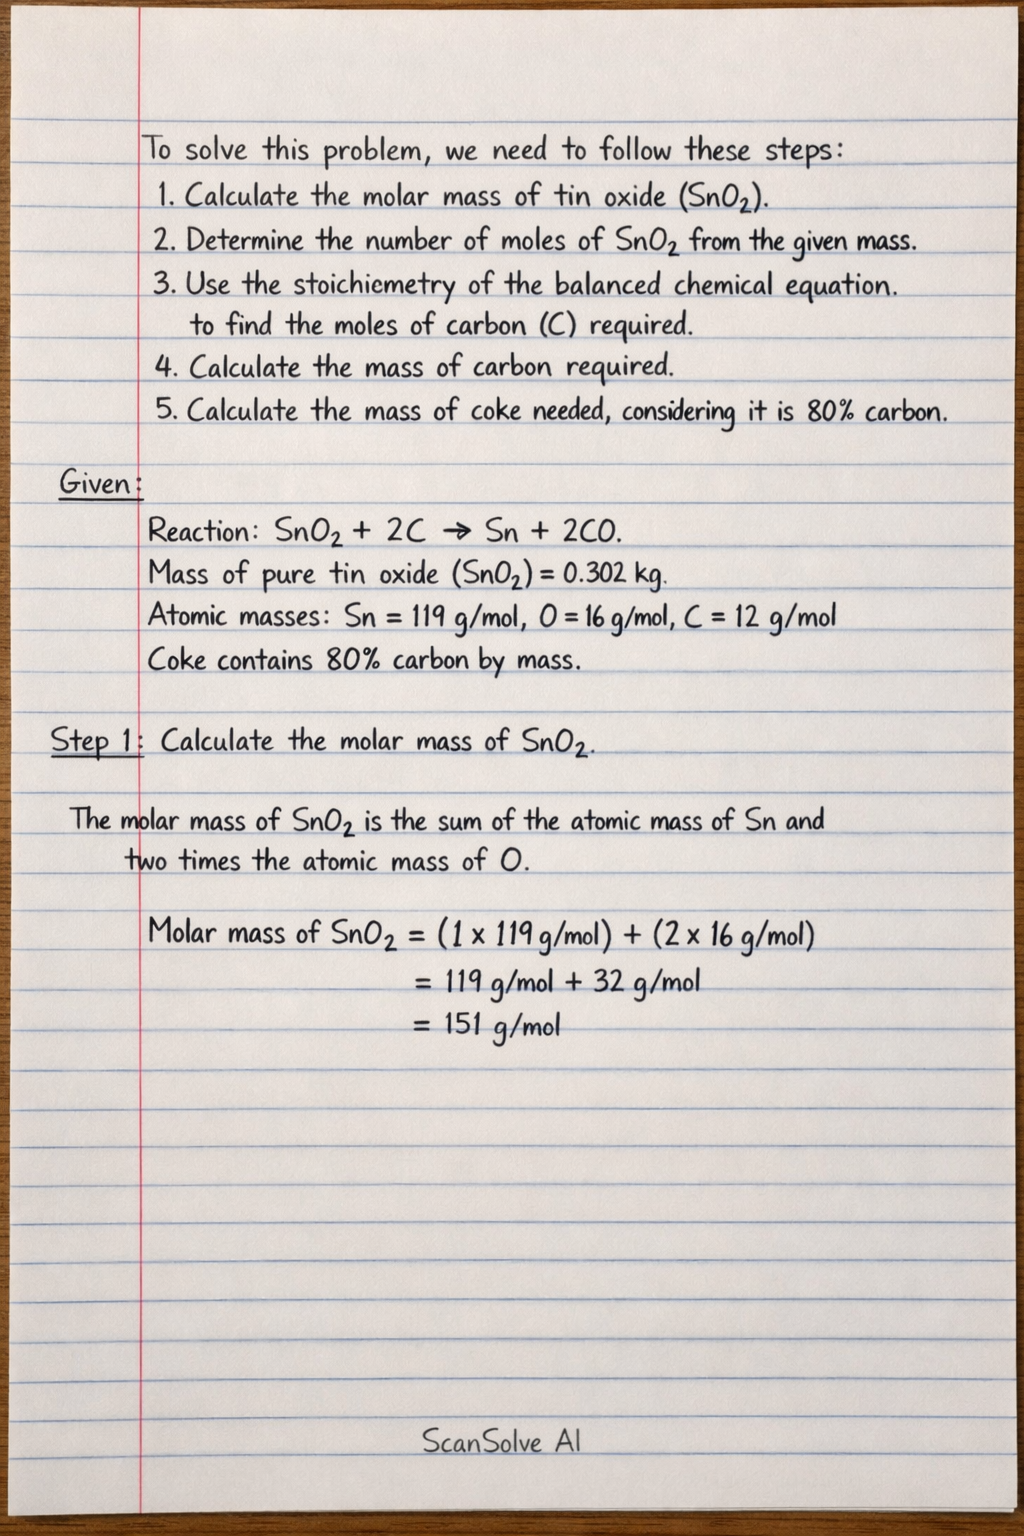 To solve this problem, we need to follow these steps:
1. Calculate the molar mass of tin oxide (SnO₂).
2. Determine the number of moles of SnO₂ from the given mass.
3. Use the stoichiemetry of the balanced chemical equation.
to find the moles of carbon (C) required.
4. Calculate the mass of carbon required.
5. Calculate the mass of coke needed, considering it is 80% carbon.
Given:
Reaction: SnO₂ + 2C → Sn + 2CO.
Mass of pure tin oxide (SnO₂) = 0.302 kg.
Atomic masses: Sn = 119 g/mol, O = 16 g/mol, C = 12 g/mol
Coke contains 80% carbon by mass.
Step 1: Calculate the molar mass of SnO₂.
The molar mass of SnO₂ is the sum of the atomic mass of Sn and
two times the atomic mass of O.
Molar mass of SnO₂ = (1 x 119 g/mol) + (2 x 16 g/mol)
= 119 g/mol + 32 g/mol
= 151 g/mol
ScanSolve AI